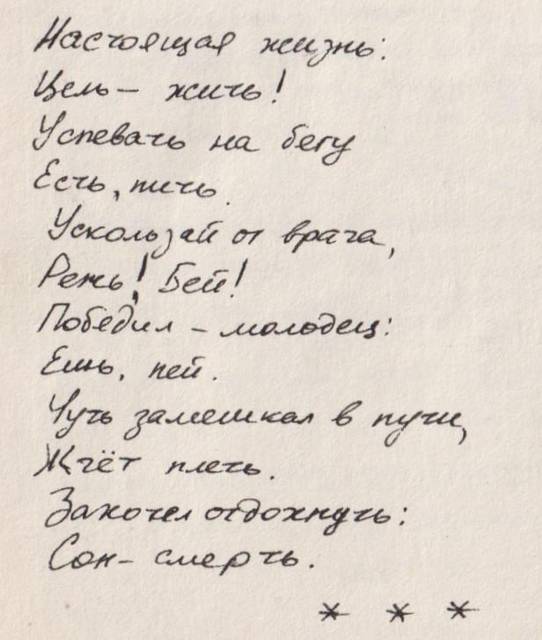 Настоящая жизнь:
Цель – жить!
Успевать на бегу
Есть, пить.
Ускользай от врага,
Режь! Бей!
Победил – молодец:
Ешь, пей.
Чуть замешкал в пути,
Ждёт плеть.
Захочел отдохнуть:
Сон – смерть.
* * *